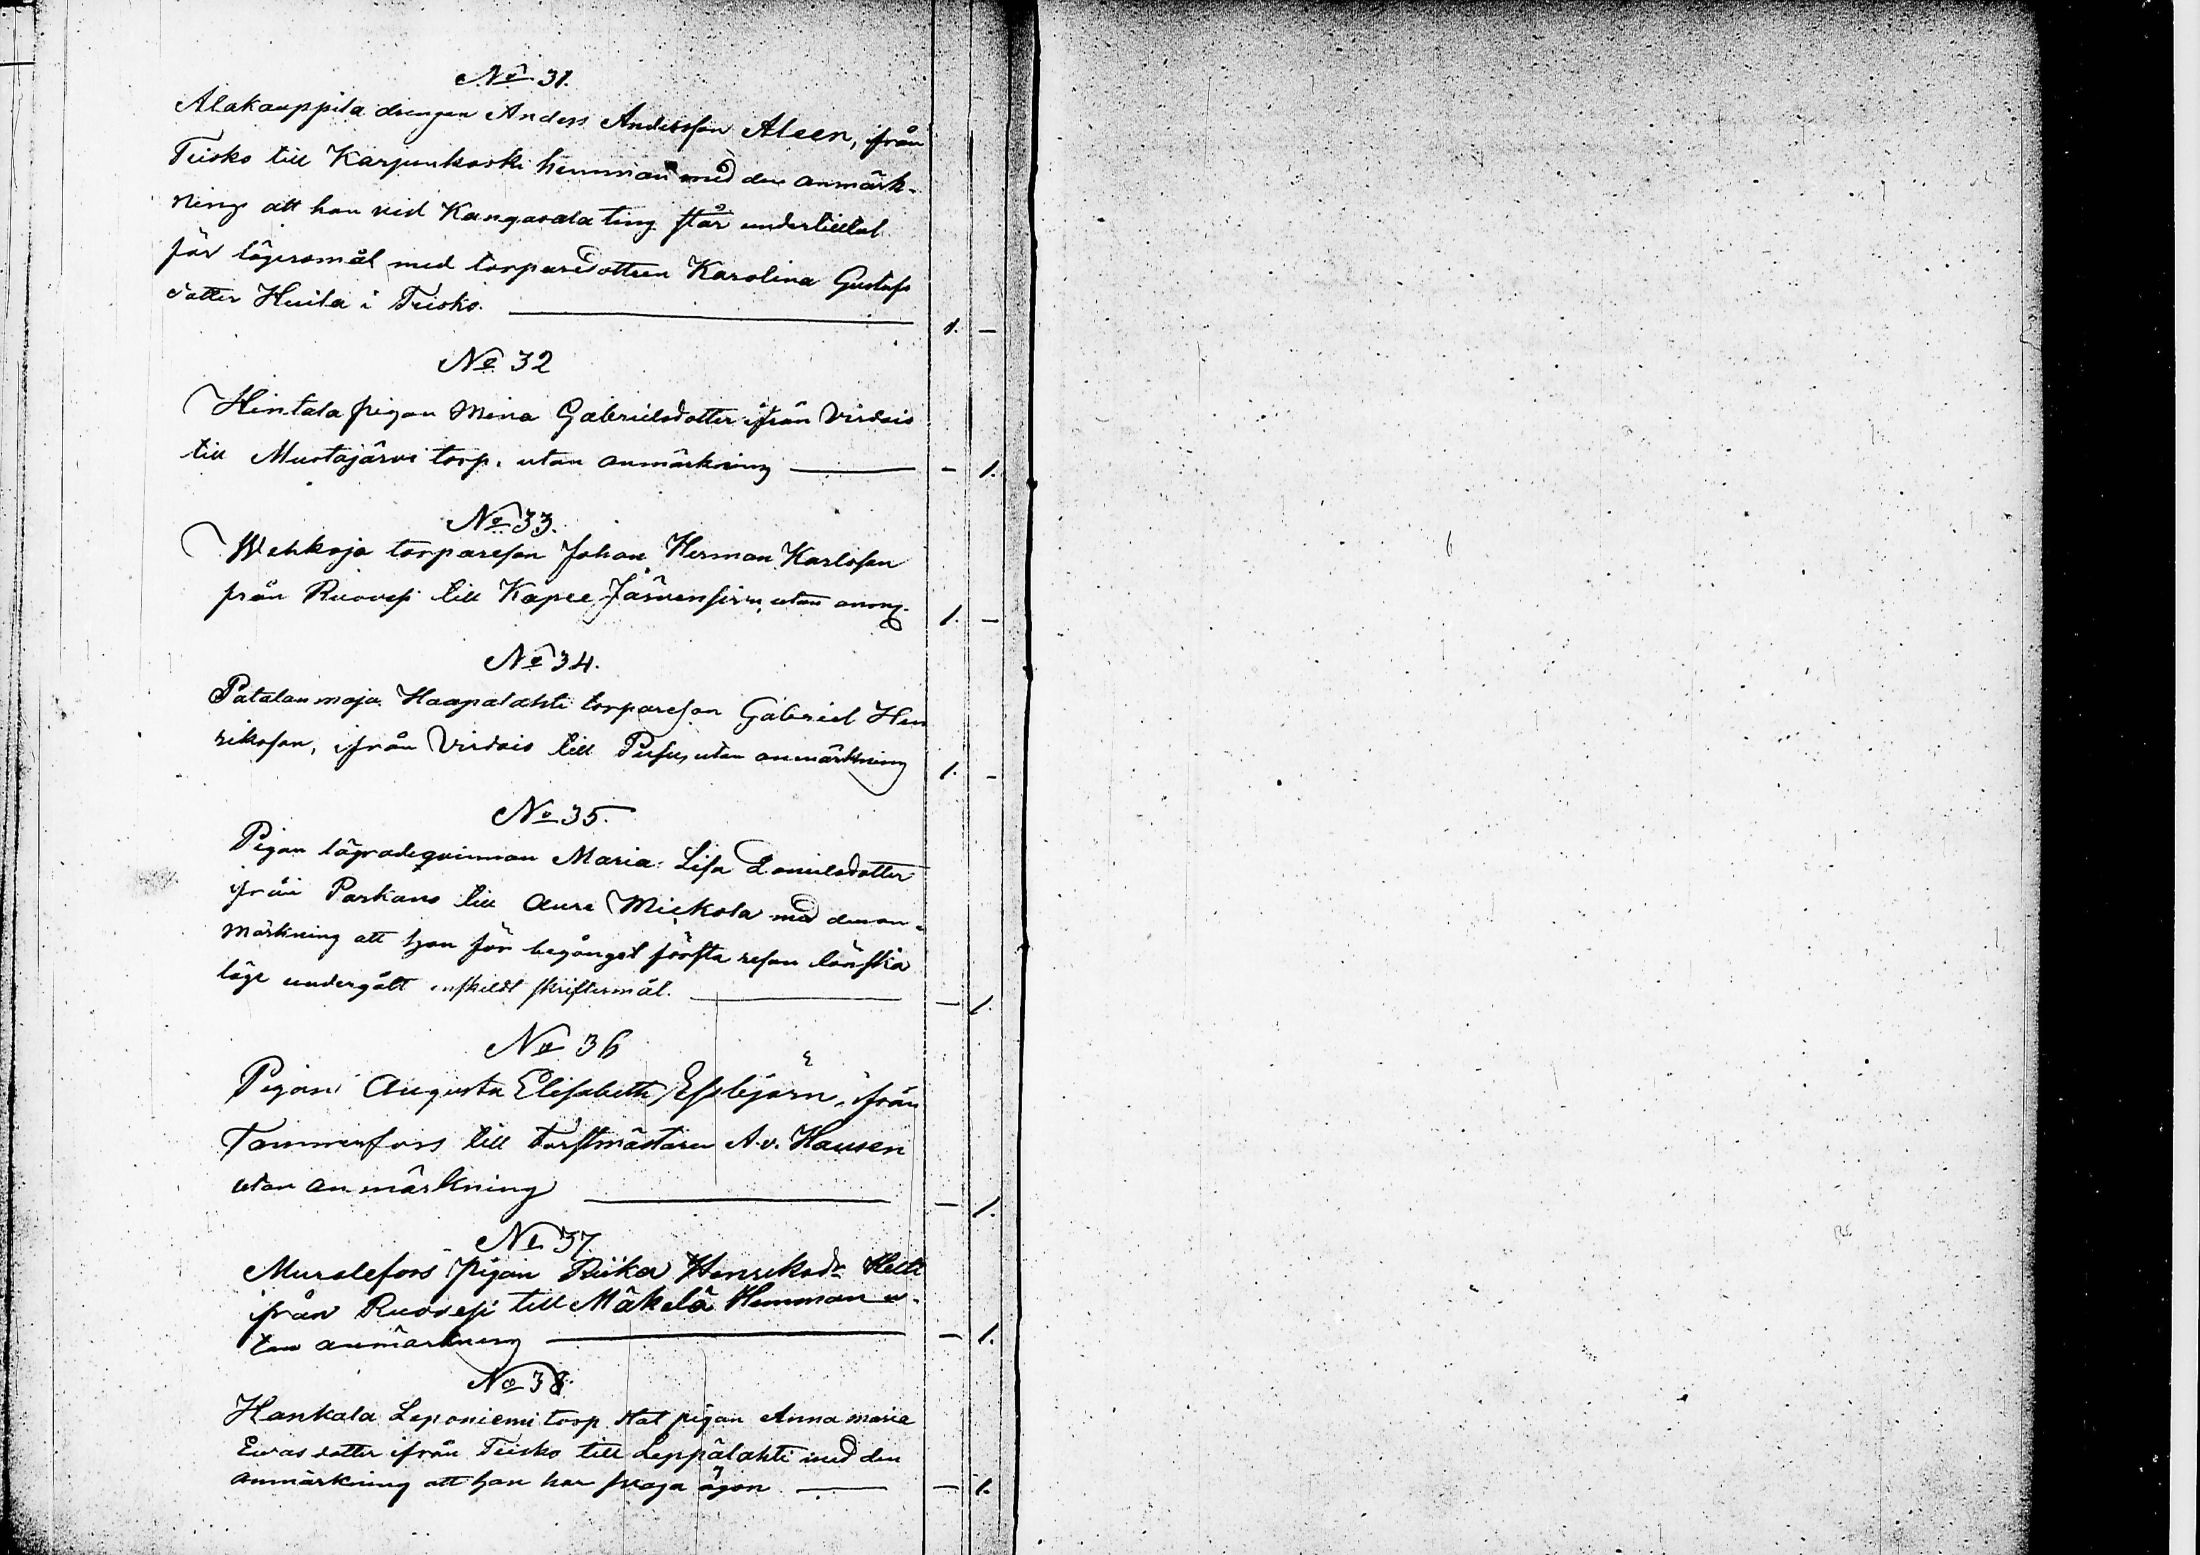 No 31.
Alakauppila drengen Anders Andersson Aleen, ifrån
Teisko till Karjunkoski hemman med den anmärk-
ning att han vid Kangasala ting står under tilltal
för lägersmål med torparedottren Karolina Gustafs
dotter Huila i Teisko. 1. —
No 32
Hintala pigan Mina Gabrielsdotter ifrån Virdois
till Mustajärvi torp. utan anmärkning — 1.
No 33.
Wehkoja torpareson Johan Herman Karlsson
från Ruovesi till Kapee Järvensivu, utan anmg. 1. —
No 34.
Patalanmaja Haapalahti torpareson Gabriel Hen
riksson, ifrån Virdois till utan anmärkning 1. —
No 35.
Pigan lägradeqvinnan Maria Lisa
ifrån Parkano till Aure Mickola med den an-
märkning att hon för begånget första resan lönska
läge undergått enskildt skriftermål. — 1.
No 36
Pigan Augusta Elisabeth Essbjörn, ifrån
Tammerfors till forstmästaren A. v. Hausen
utan anmärkning — 1.
No 37.
Murolefors pigan Riika Henriksdr
ifrån Ruovesi till Mäkelä Hemman u-
tan anmärkning — 1.
No 38
Hankala Leponiemi torp pigan Anna Maria
Ewasdotter ifrån Teisko till Leppälahti med den
anmärkning att hon har svaga ögon — 1.